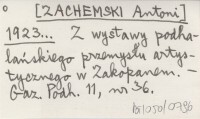 [ZACHEMSKI Antoni]
1923... Z wystawy podha-
lańskiego przemysłu artys-
tycznego w Zakopanem. –
Gaz. Podh. 11, nr 36.